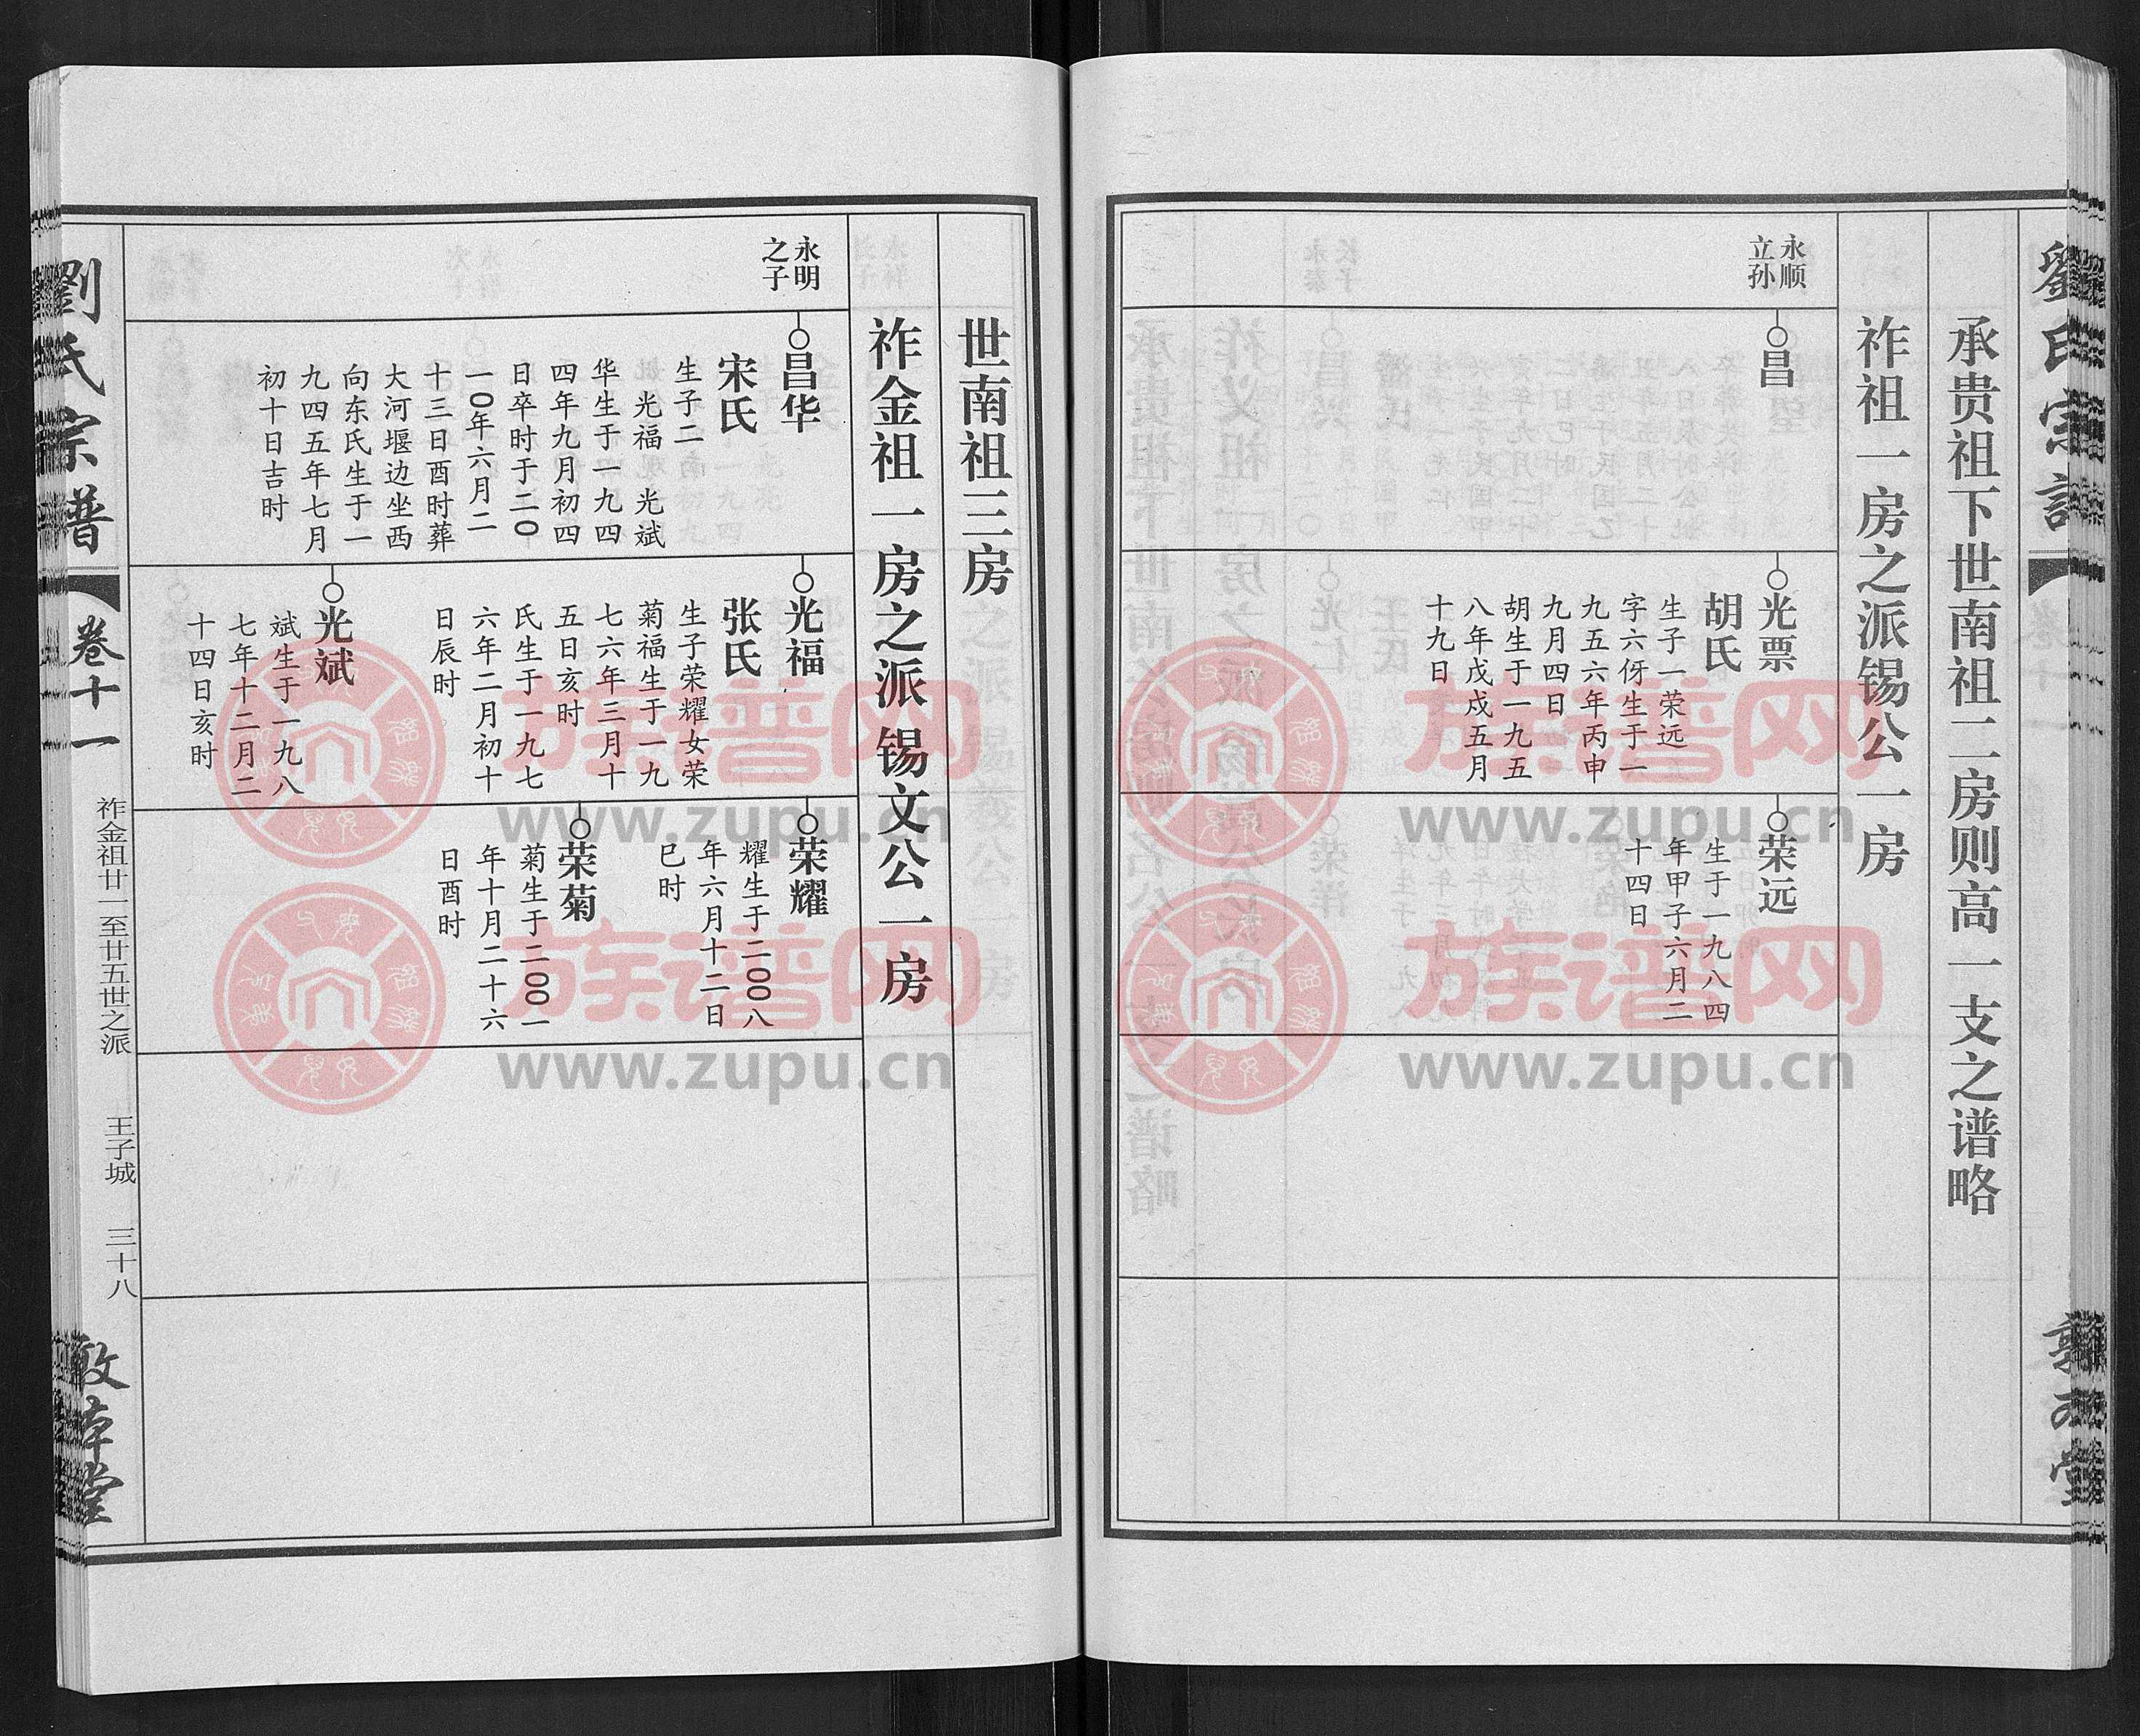 劉氏宗譜
承贵祖下世南祖二房则高一支之谱略
祚祖一房之派锡公一房
永顺
立孙
昌
光票
胡氏
生子一荣远
字六伢生于一
九五六年丙申
九月四日
胡生于一九五
八年戊戍五月
十九日
荣远
生于一九八四
年甲子六月二
十四日
世南祖三房
祚金祖一房之派锡文公一房
永明
之子
昌华
宋氏
生子二
光福 光斌
华生于一九四
四年九月初四
日卒时于二〇
一〇年六月二
十三日酉时葬
大河堰边坐西
向东氏生于一
九四五年七月
初十日吉时
光福
张氏
生子荣耀女荣
菊福生于一九
七六年三月十
五日亥时
氏生于一九七
六年二月初十
日辰时
光斌
斌生于一九八
七年十二月二
十四日亥时
荣耀
耀生于二〇〇八
年六月十二日
巳时
荣菊
菊生于二〇〇一
年十月二十六
日酉时
劉氏宗譜
卷十一
祚金祖廿一至廿五世之派
王子城
三十八
敦本堂
族谱网
www.zupu.cn
族谱网
www.zupu.cn
族谱网
www.zupu.cn
族谱网
www.zupu.cn